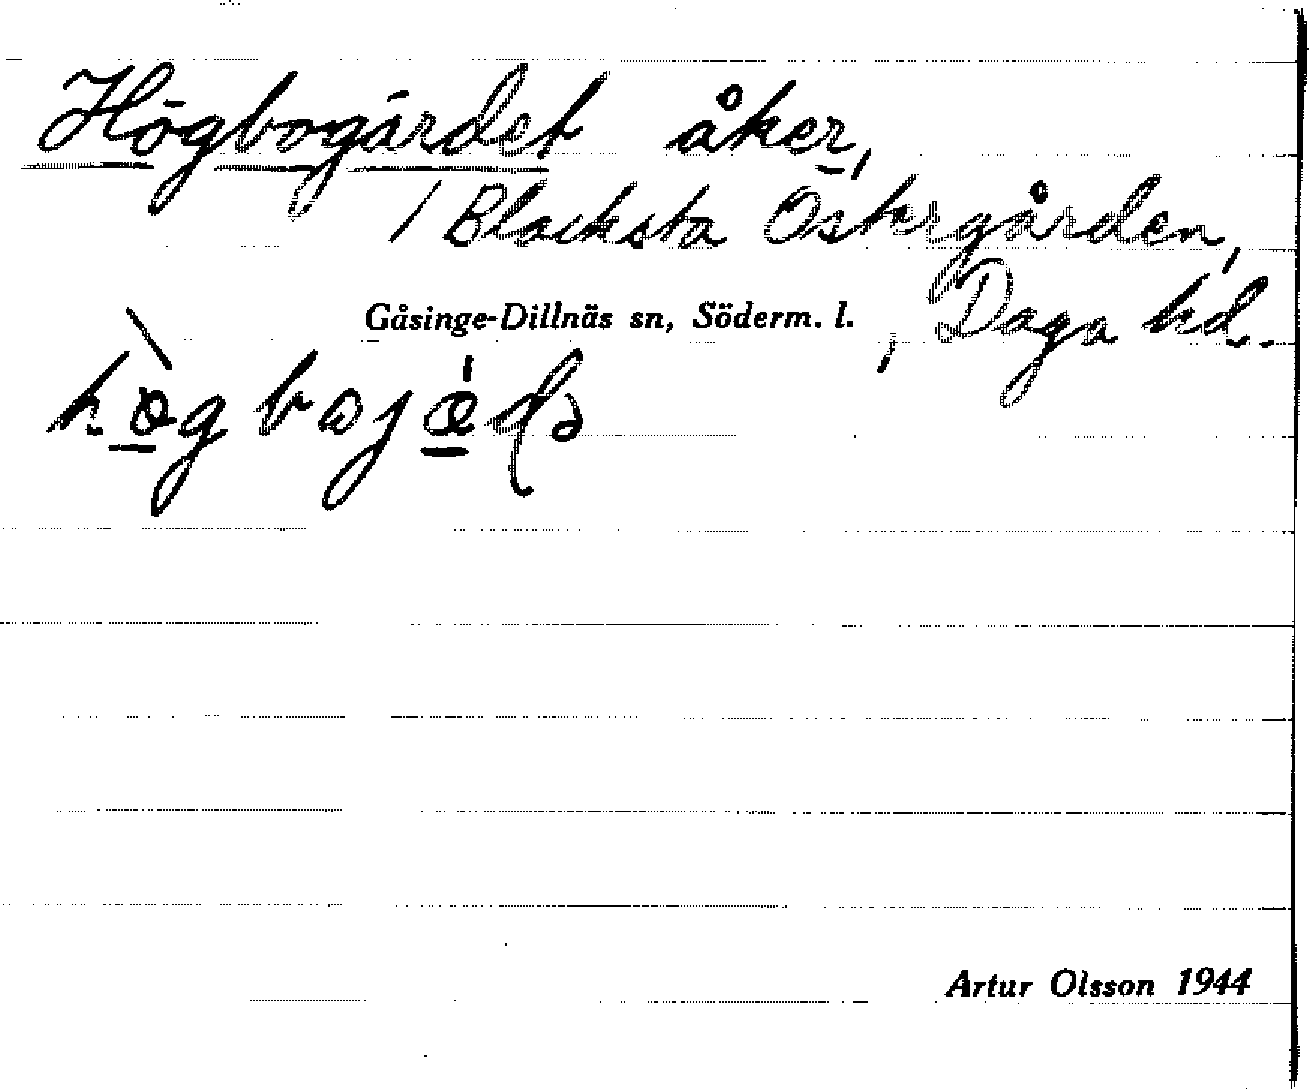 Högbogärdet åker,
/ Blacksta Östergården,
Gåsinge-Dillnäs sn, Söderm. l. , Daga hd.
Artur Olsson 1944